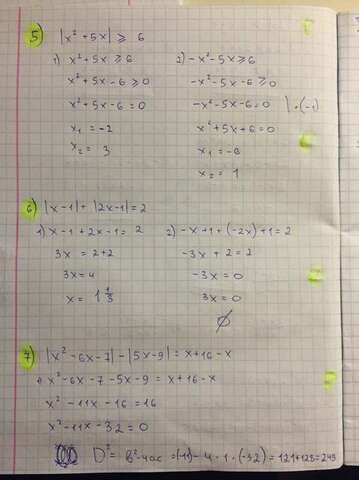 5) |x² + 5x| ≥ 6
1) x² + 5x ≥ 6
x² + 5x - 6 ≥ 0
x² + 5x - 6 = 0
x₁ = -2
x₂ = 3
2) -x² - 5x ≥ 6
-x² - 5x - 6 ≥ 0
-x² - 5x - 6 = 0 | · (-1)
x² + 5x + 6 = 0
x₁ = -6
x₂ = 1
6) |x - 1| + |2x - 1| = 2
1) x - 1 + 2x - 1 = 2
3x = 2 + 2
3x = 4
x = 1 1/3
2) -x + 1 + (-2x) + 1 = 2
-3x + 2 = 2
-3x = 0
3x = 0
∅
7) |x² - 6x - 7| - |5x - 9| = x + 16 - x
x² - 6x - 7 - 5x - 9 = x + 16 - x
x² - 11x - 16 = 16
x² - 11x - 32 = 0
D = b² - 4ac = (-11) - 4 · 1 · (-32) = 121 + 128 = 249